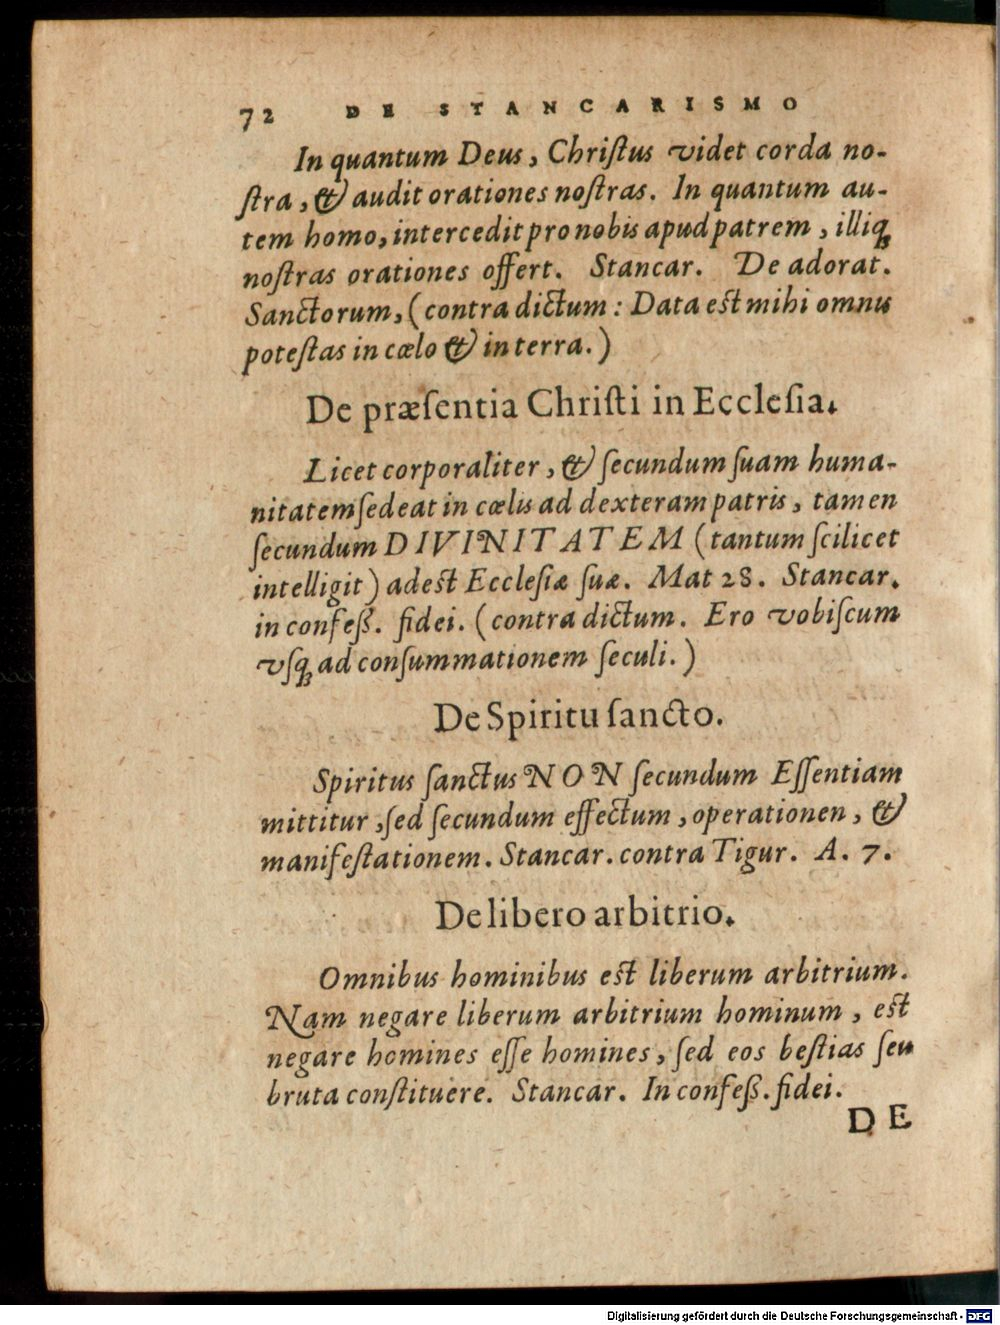 72 DE STANCARISMO
In quantum Deus, Chriſtus videt corda no-
ſtra, & audit orationes noſtras. In quantum au-
tem homo, intercedit pro nobis apud patrem, illiq́ꝫ
noſtras orationes offert. Stancar. De adorat.
Sanctorum, (contra dictum: Data est mihi omnis
poteſtas in cœlo & in terra.)
De præſentia Chriſti in Eccleſia.
Licet corporaliter, & ſecundum ſuam huma-
nitatem ſedeat in cœlis ad dexteram patris, tamen
ſecundum DIVINITATEM (tantum ſcilicet
intelligit) adest Eccleſiæ ſuæ. Mat 28. Stancar.
in confeß. fidei. (contra dictum. Ero vobiſcum
vſqꝫ ad conſummationem ſeculi.)
De Spiritu ſancto.
Spiritus ſanctus NON ſecundum Eſſentiam
mittitur, ſed ſecundum effectum, operationen, &
manifeſtationem. Stancar. contra Tigur. A. 7.
De libero arbitrio.
Omnibus hominibus est liberum arbitrium.
Nam negare liberum arbitrium hominum, est
negare homines eſſe homines, ſed eos beſtias ſeu
bruta conſtituere. Stancar. In confeß. fidei.
DE
Digitalisierung gefördert durch die Deutsche Forschungsgemeinschaft - DFG